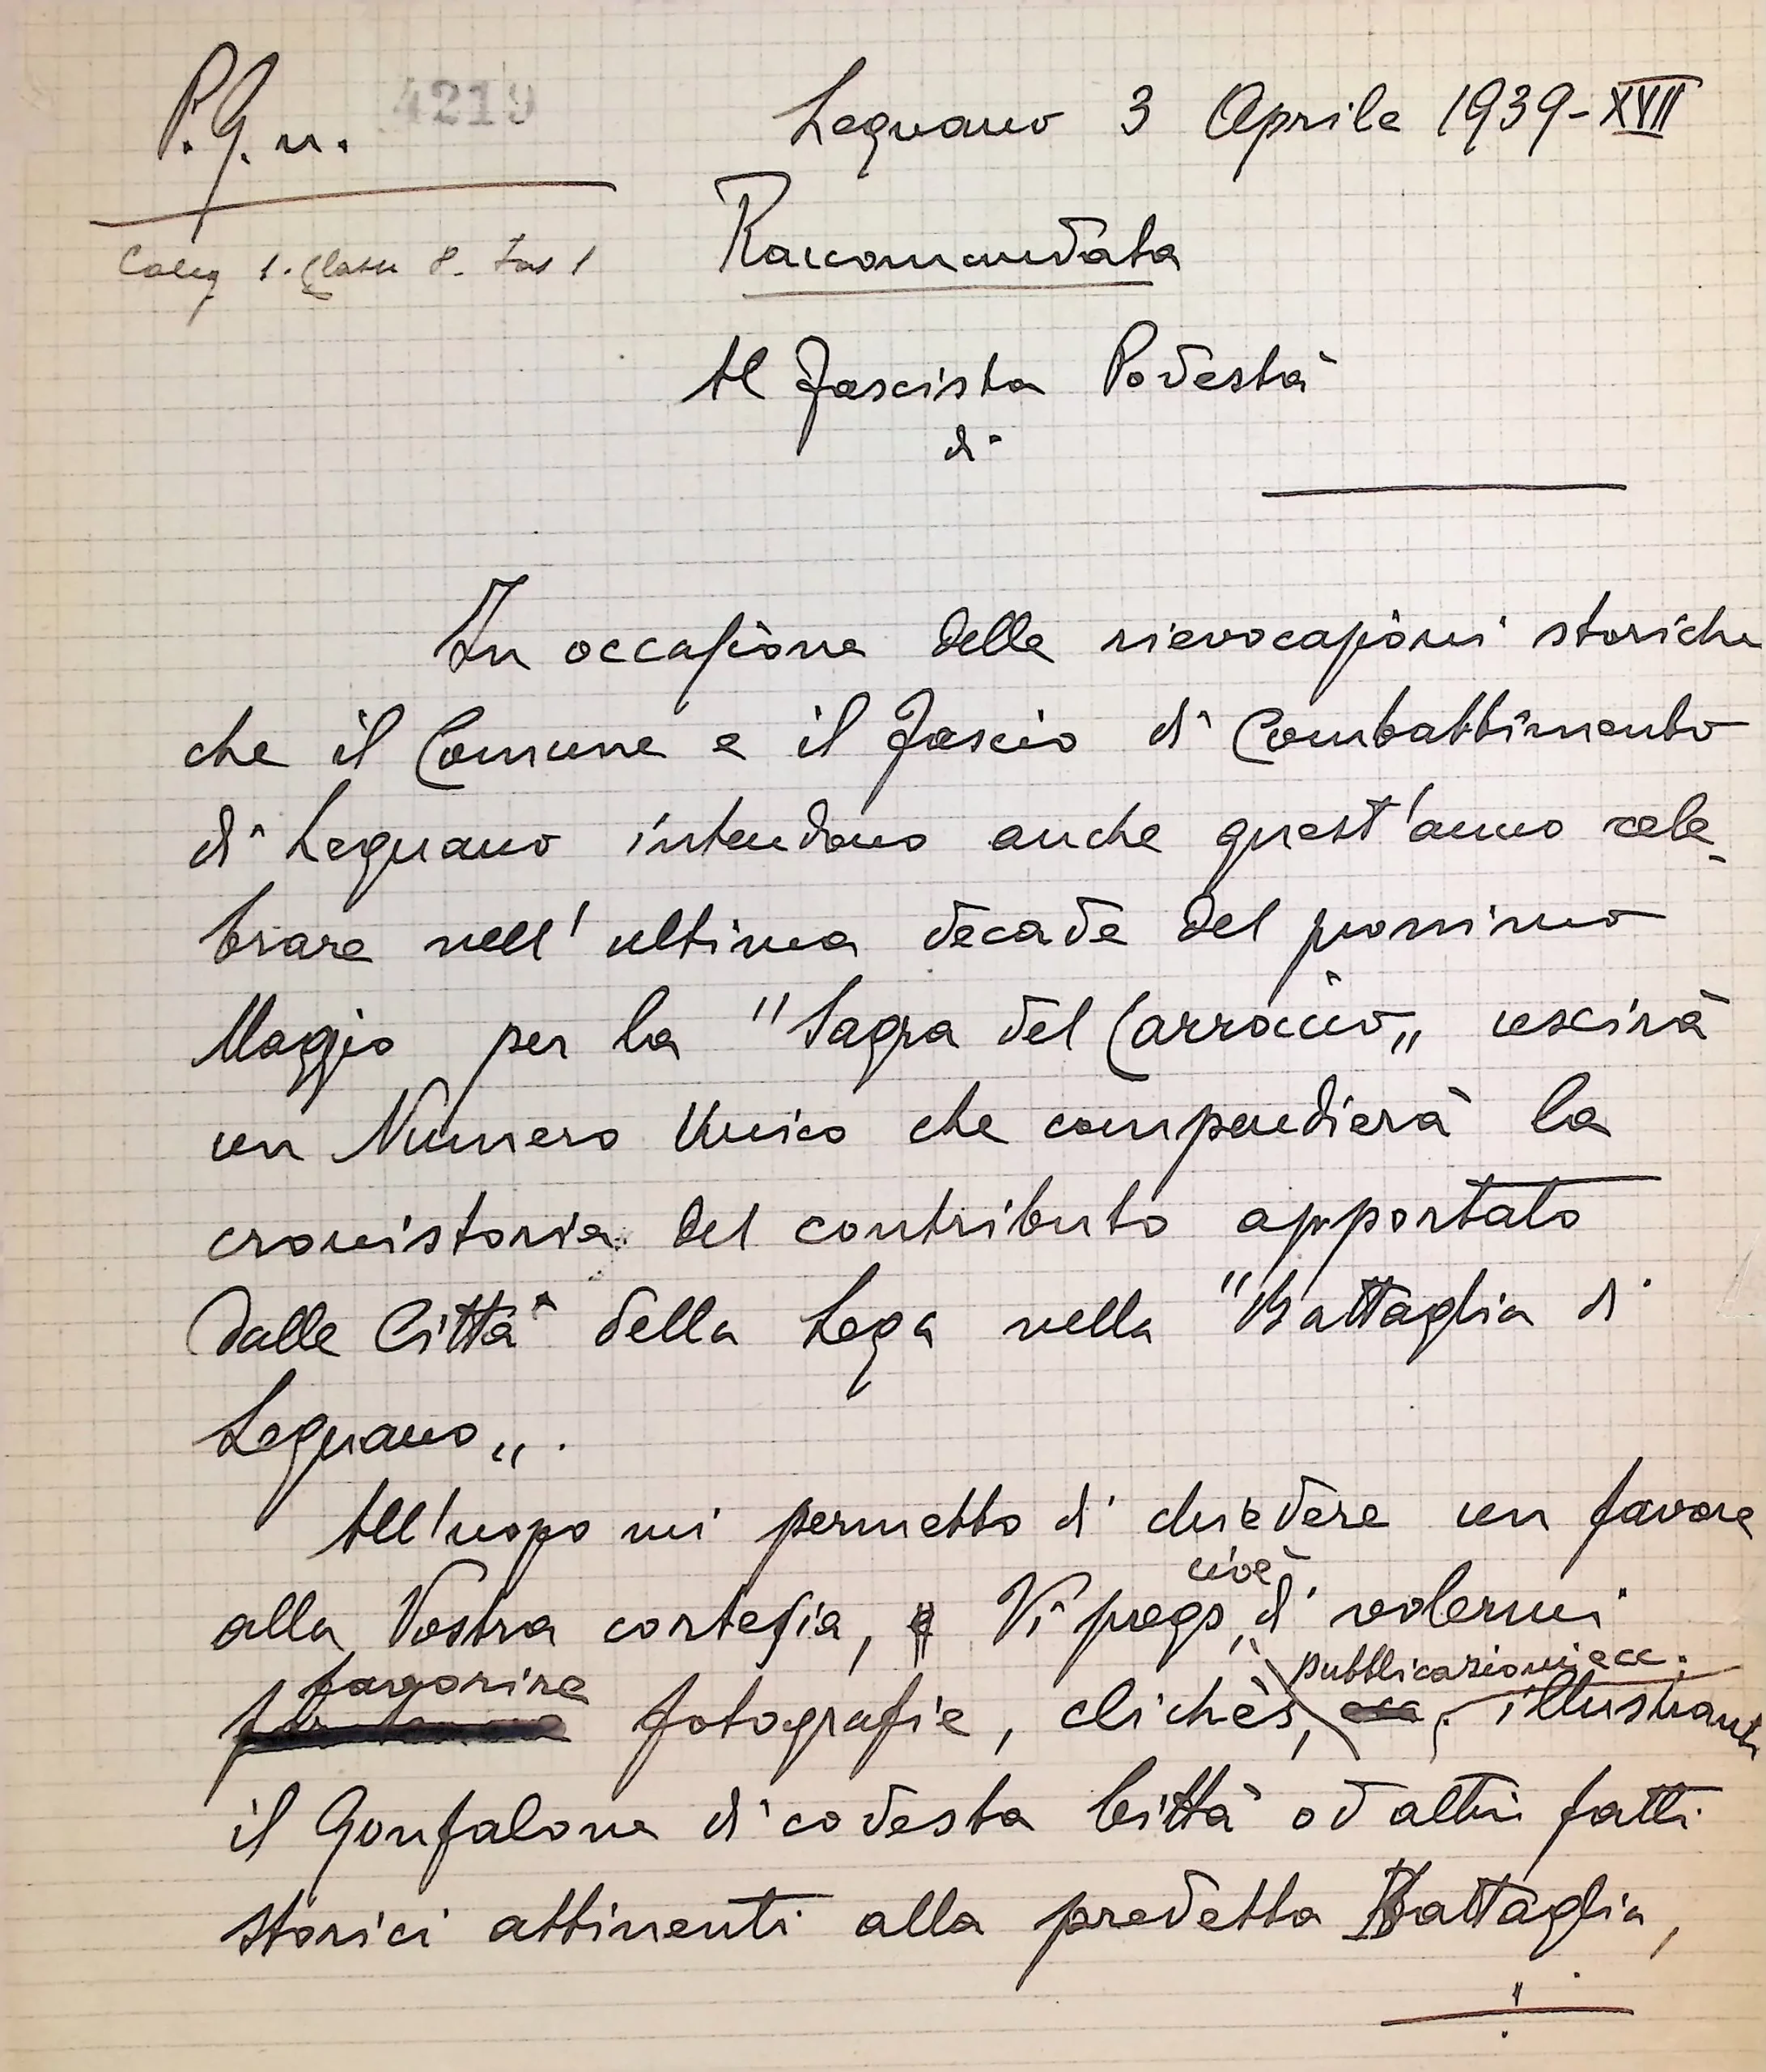 P.G.n. 4219
Legnano 3 Aprile 1939-XVII
Categ 1. Classe 8. Fas 1
Raccomandata
Al Fascista Podestà
di
In occasione delle rievocazioni storiche
che il Comune e il Fascio di Combattimento
di Legnano intendono anche quest'anno cele
brare nell'ultima decade del prossimo
Maggio per la "Sagra del Carroccio„ uscirà
un Numero Unico che compendierà la
cronistoria del contributo apportato
dalle Città della Lega nella "Battaglia di
Legnano„.
All'uopo mi permetto di chiedere un favore
cioè
alla Vostra cortesia, e Vi prego, di volermi
favorire pubblicazioni ecc.
fotografie, clichès, ecc, illustranti
il Gonfalone di codesta Città od altri fatti
storici attinenti alla predetta Battaglia,